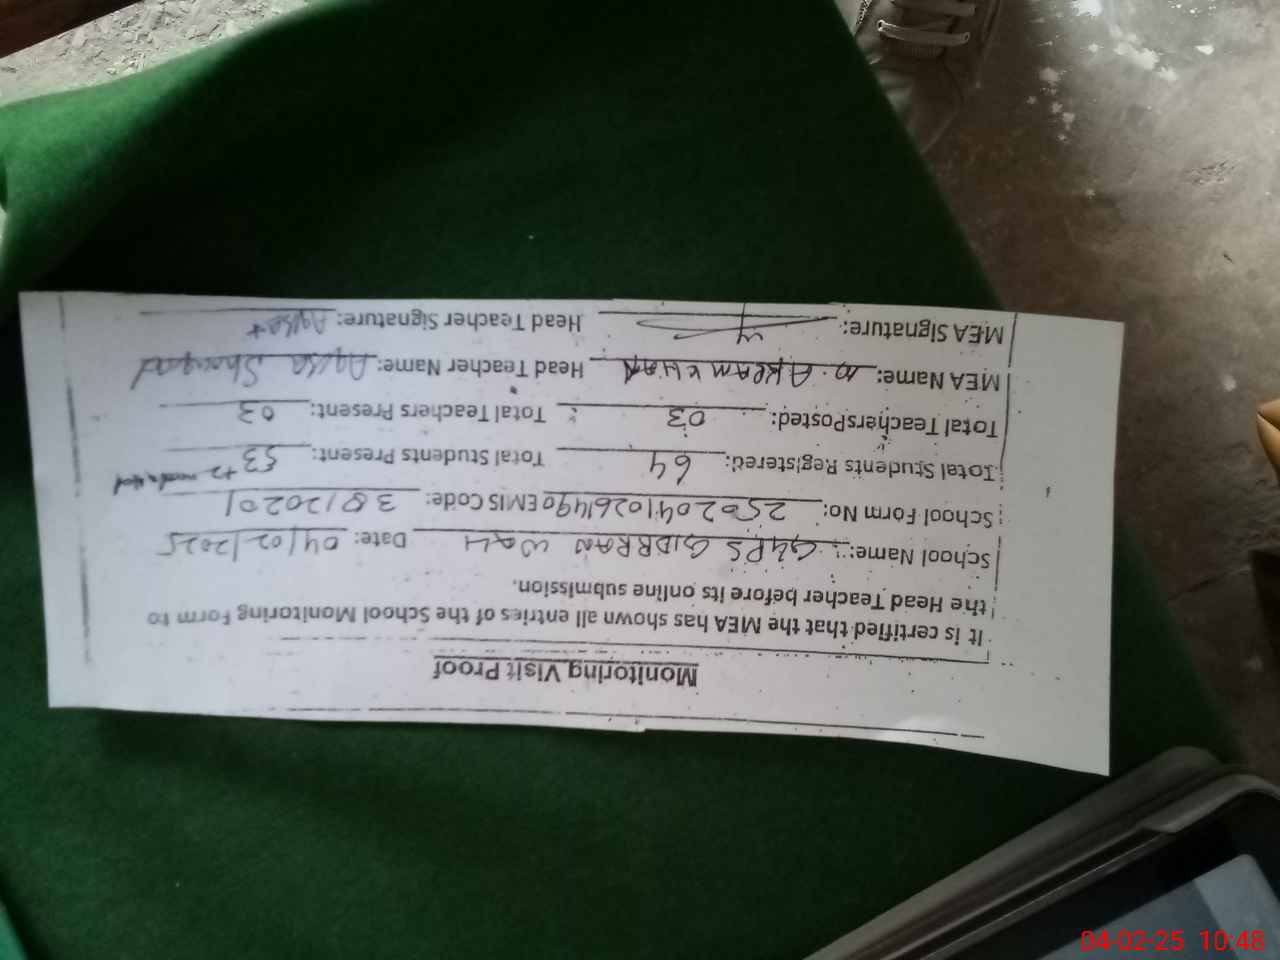 Monitoring Visit Proof
It is certified that the MEA has shown all entries of the School Monitoring Form to
the Head Teacher before its online submission.
School Name: GGPS GIDRRAN WALI Date: 04/02/2025
School Form No: 250204102614490 EMIS Code: 38120201
Total Students Registered: 64 Total Students Present: 53 +2
Total Teachers Posted: 03 Total Teachers Present: 03
MEA Name: M. AKRAM KHAN Head Teacher Name: Aqsa Shamshad
MEA Signature: Head Teacher Signature: Aqsa
04-02-25 10:48